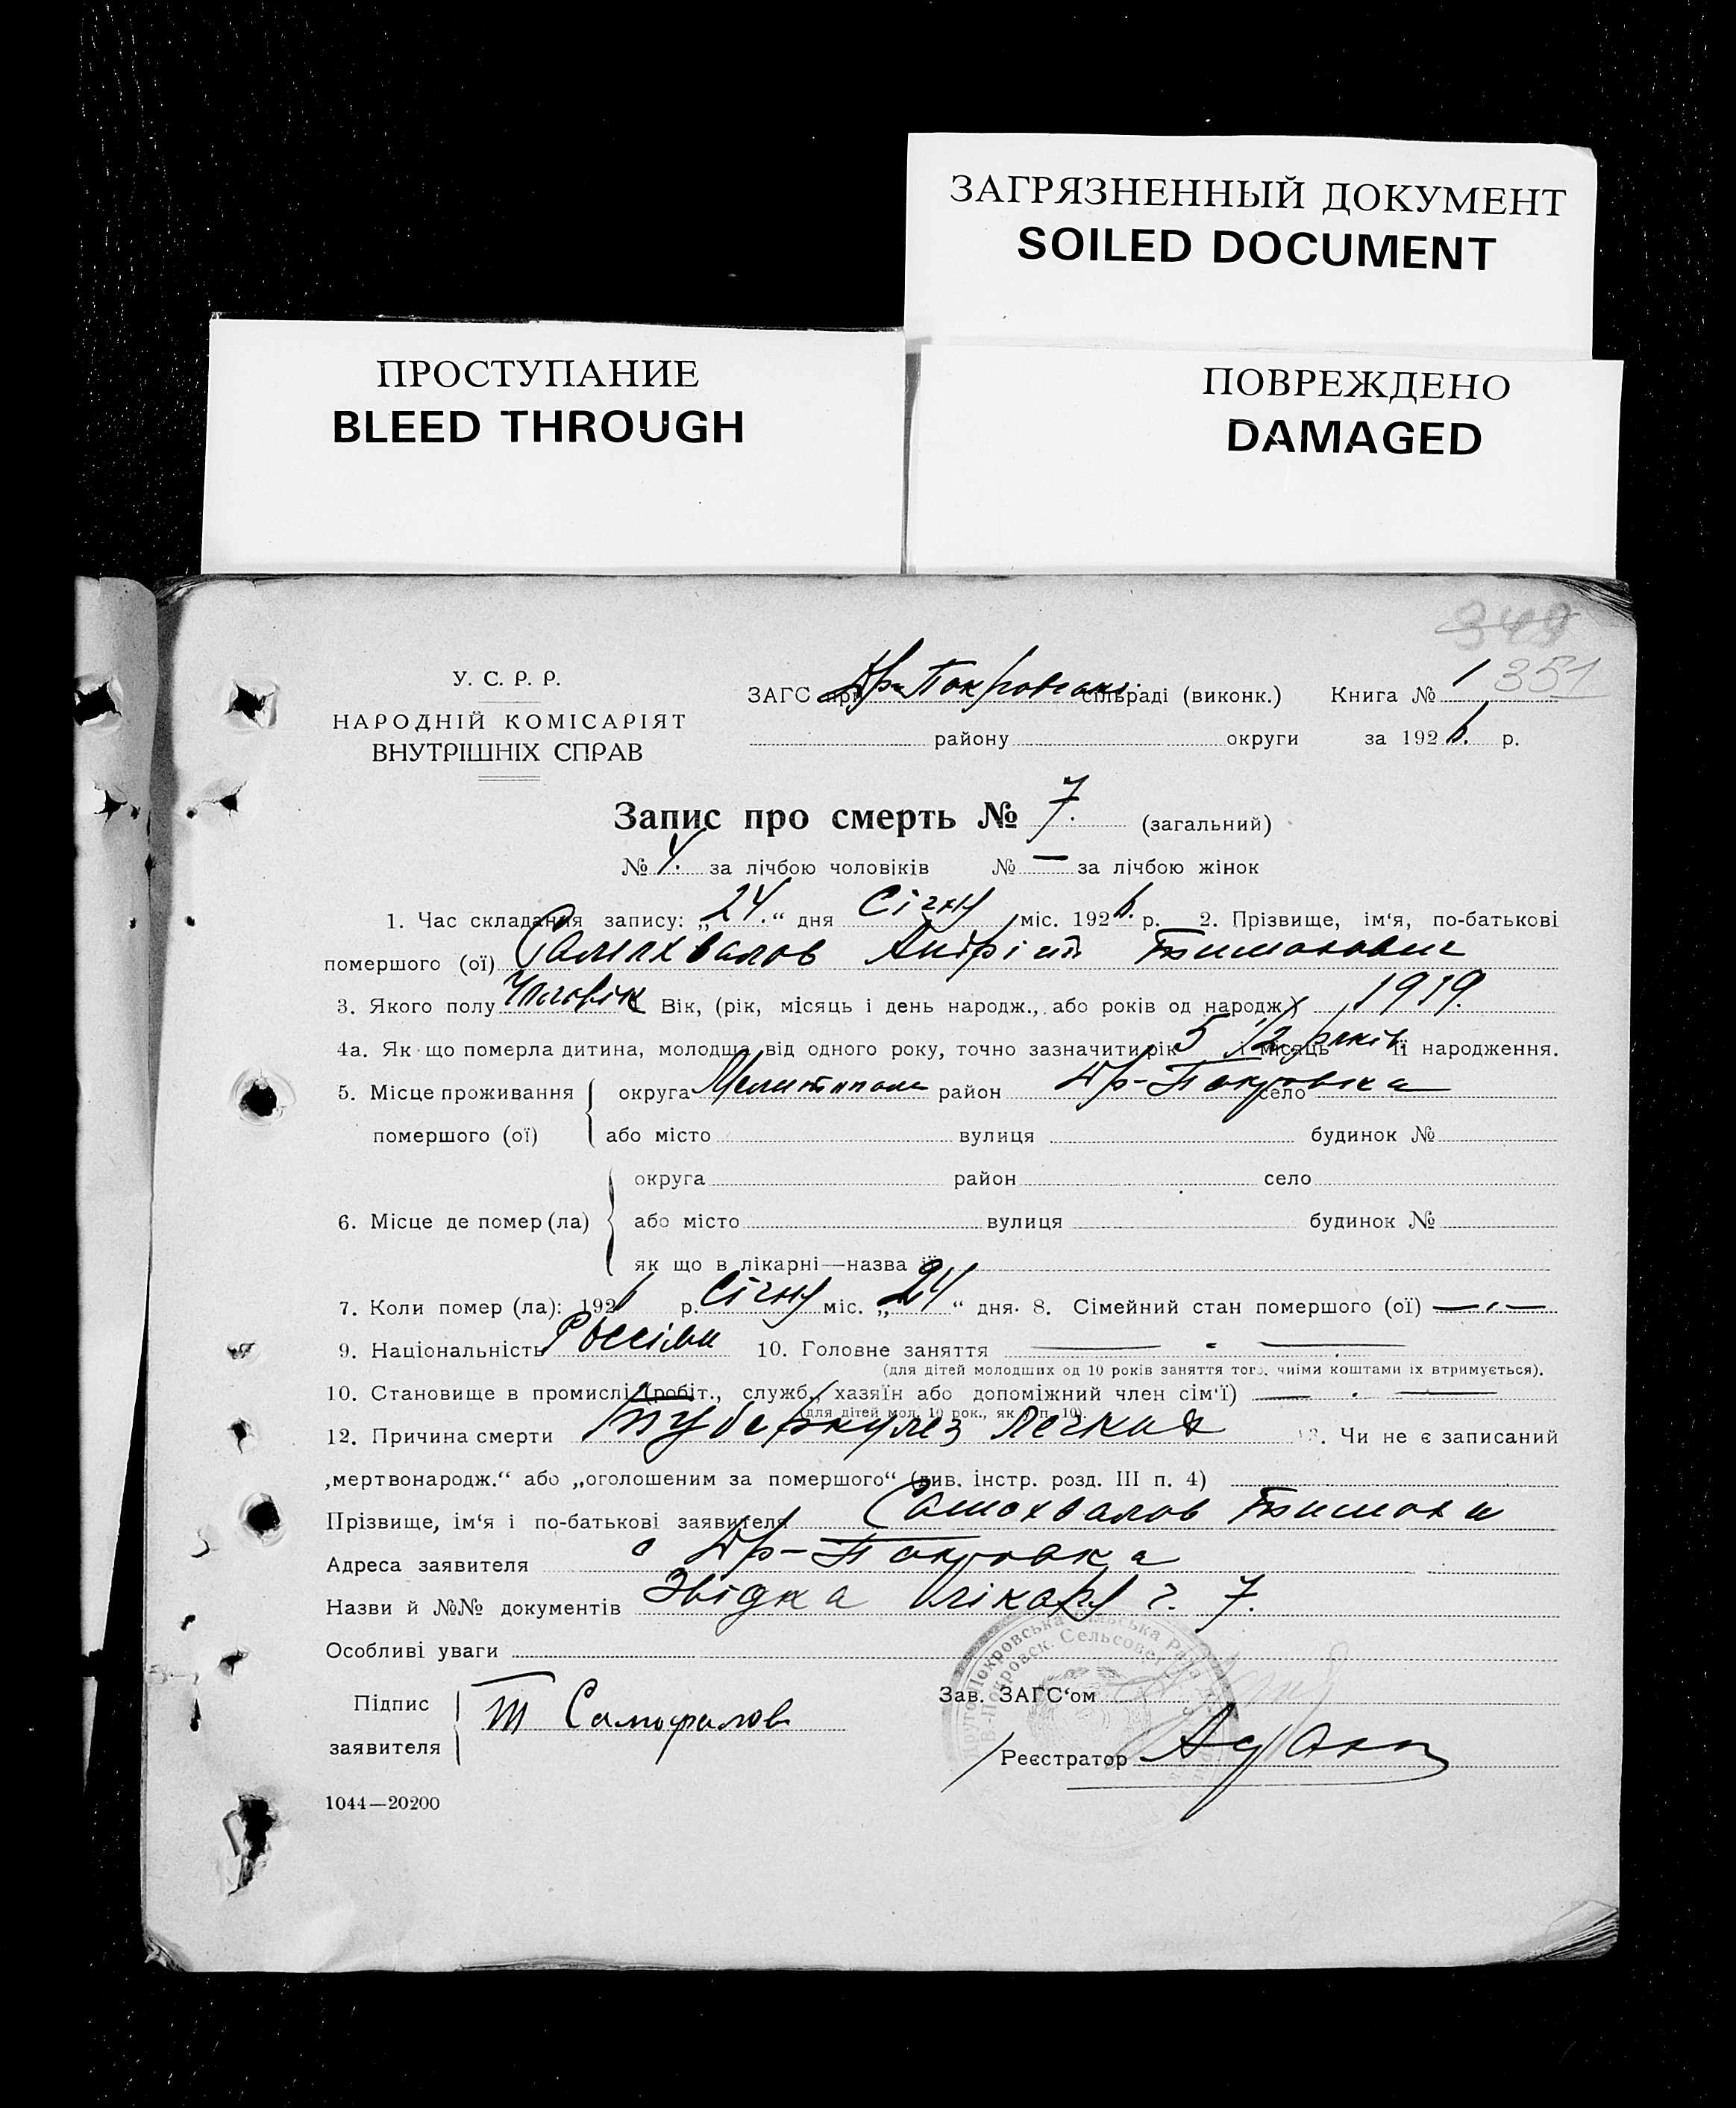 ЗАГРЯЗНЕННЫЙ ДОКУМЕНТ
SOILED DOCUMENT
ПРОСТУПАНИЕ
BLEED THROUGH
ПОВРЕЖДЕНО
DAMAGED
349
351
У. С. Р. Р.
НАРОДНІЙ КОМІСАРІЯТ
ВНУТРІШНІХ СПРАВ
ЗАГС при Др-Покровські сільраді (виконк.) Книга № 1
району округи за 1926. р.
Запис про смерть № 7. (загальний)
№ 4. за лічбою чоловіків № — за лічбою жінок
1. Час складання запису: „24.“ дня Січня міс. 1926. р. 2. Прізвище, ім‘я, по-батькові
помершого (ої) Самохвалов Андрій Тимохович
3. Якого полу Чоловік Вік, (рік, місяць і день народж., або років од народж.) 1919.
4а. Як-що померла дитина, молодша від одного року, точно зазначити рік і місяць її народження. 5 1/2 років.
5. Місце проживання помершого (ої) округа Мелитополь район Др-Покровка село
або місто вулиця будинок №
6. Місце де помер (ла) округа район село
або місто вулиця будинок №
як що в лікарні—назва її
7. Коли помер (ла): 1926 р. Січня міс. „24“ дня. 8. Сімейний стан помершого (ої) —.—
9. Національність 10. Головне заняття — " —
(для дітей молодших од 10 років заняття того, чиїми коштами їх втримується).
10. Становище в промислі (робіт., служб., хазяїн або допоміжний член сім‘ї) — . —
(для дітей мол. 10 рок., як у п. 10).
12. Причина смерти туберкулез легких 13. Чи не є записаний
„мертвонародж.“ або „оголошеним за помершого“ (див. інстр. розд. III п. 4)
Прізвище, ім‘я і по-батькові заявителя Самохвалов Тимохи
Адреса заявителя с Др-Покровка
Назви й №№ документів Звідка лікаря ч. 7.
Особливі уваги
Підпис заявителя Т Самофалов
Зав. ЗАГС‘ом
Реєстратор
Друго-Покровська Сільська Рада
В.-Покровск. Сельсовет
1044—20200